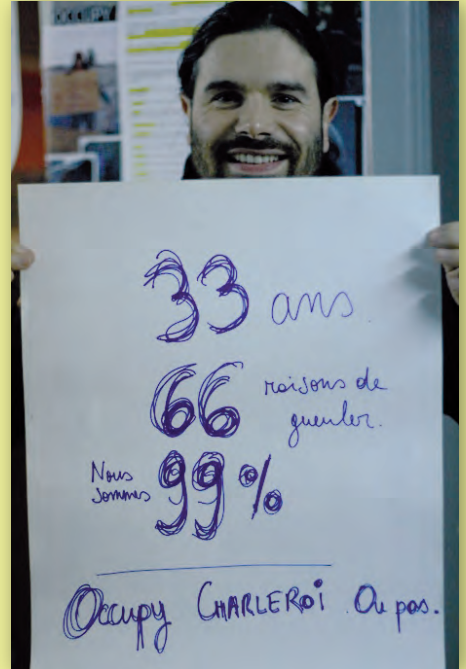 OCCUPY
33 ans.
66 raisons de
gueuler.
Nous
sommes 99%
Occupy CHARLEROI Ou pas.